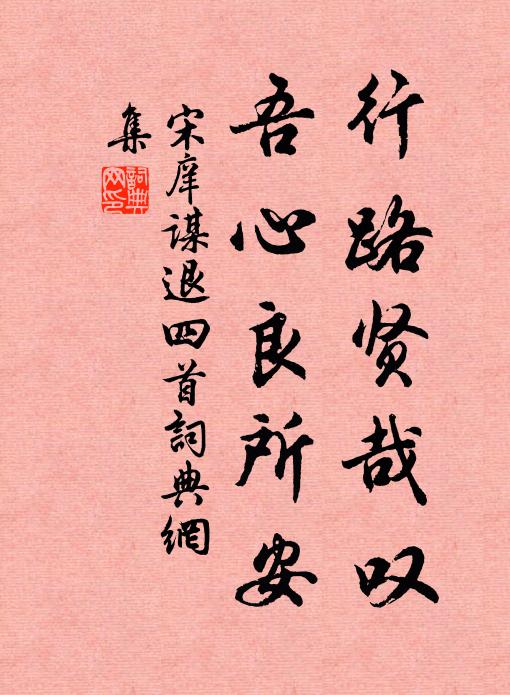 行路贤哉叹
吾心良所安
宋庠谋退四首詞典網
集
詞典網印